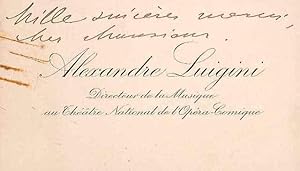 Mille sincères mercis,
cher Monsieur.
Alexandre Luigini
Directeur de la Musique
au Théâtre National de l'Opéra-Comique